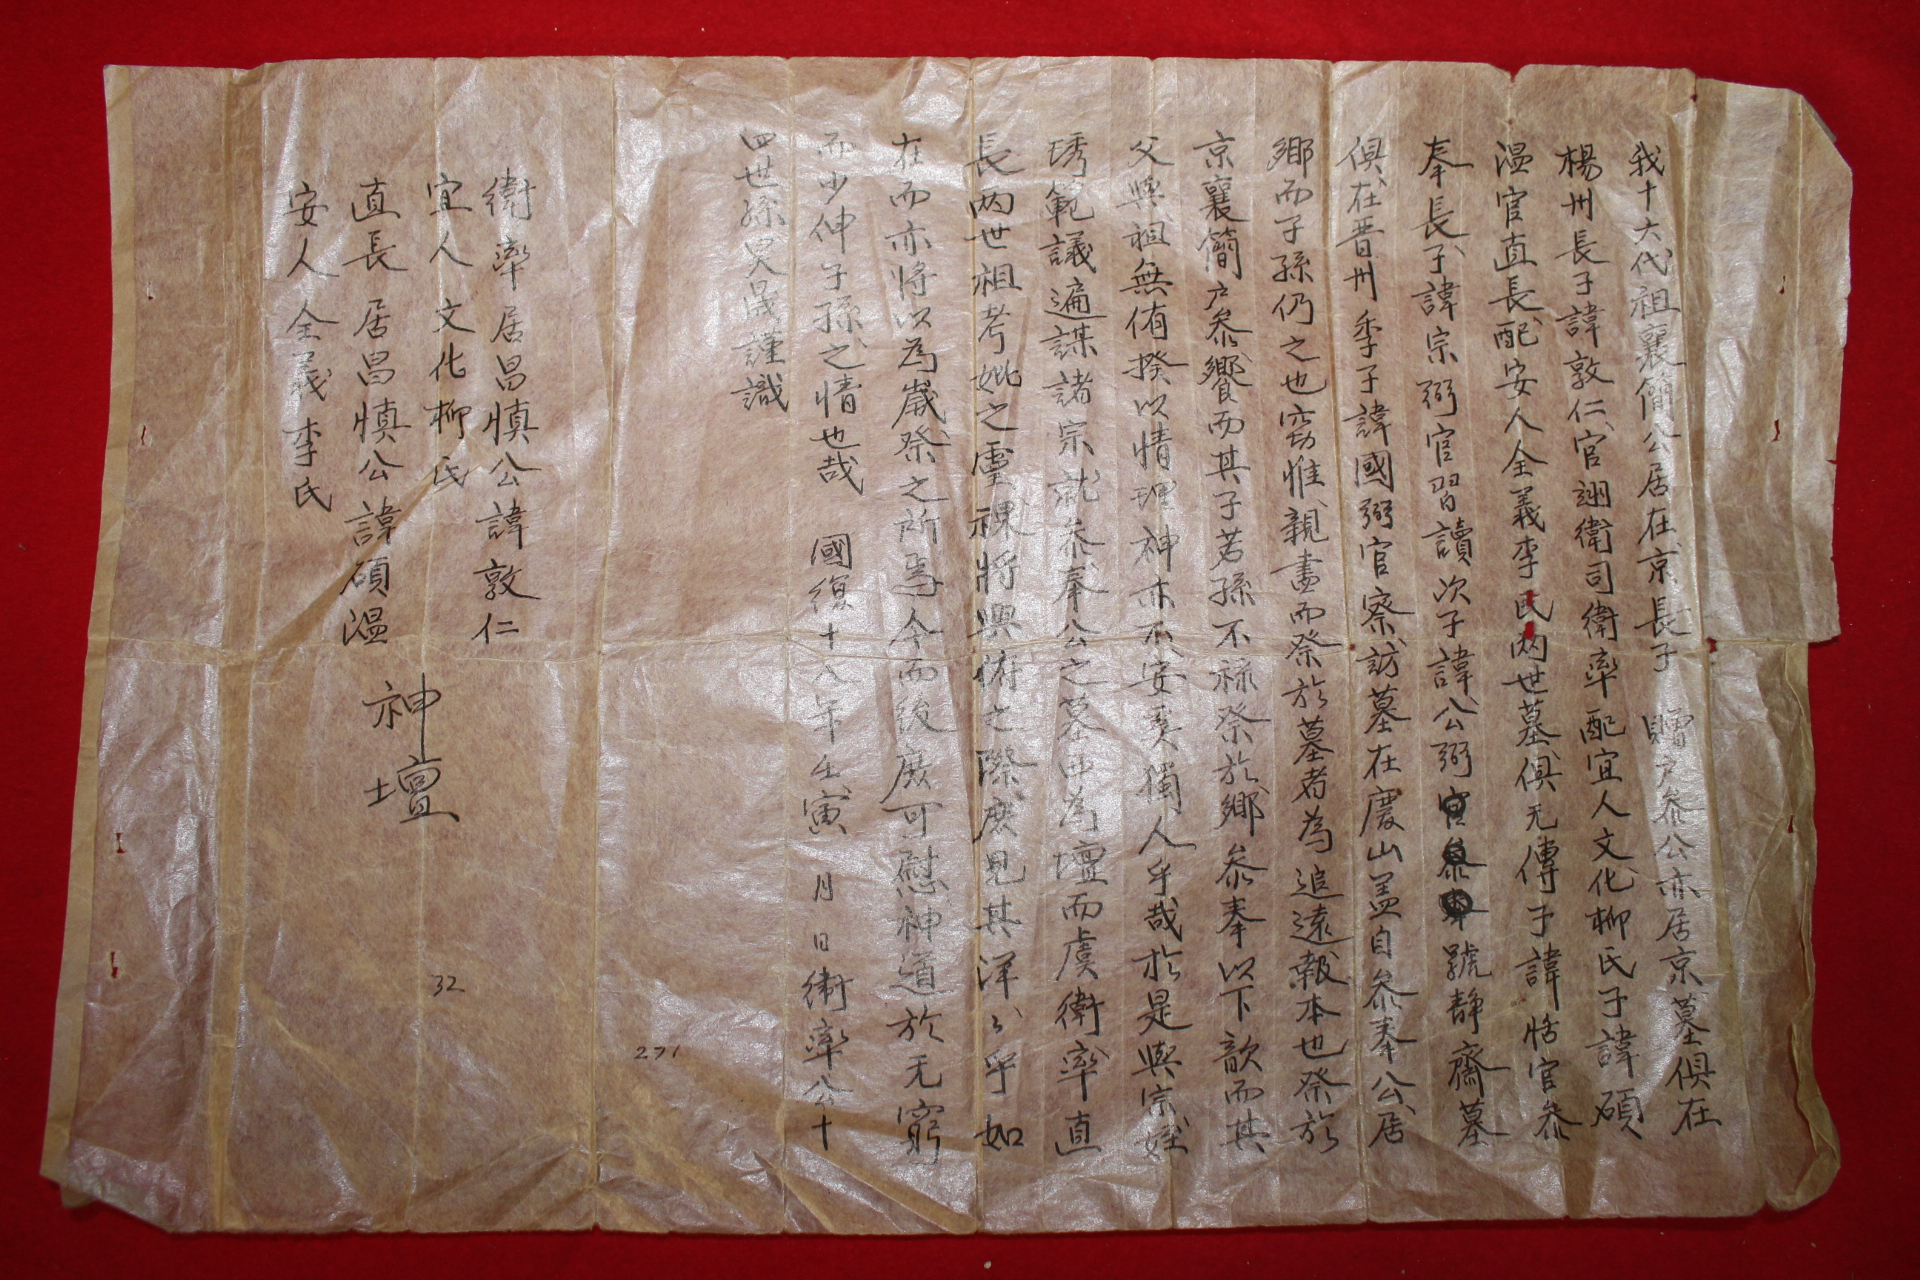 我十六代祖襄簡公居在京長子 贈戶參公亦居京墓俱在
楊州長子諱敦仁官翊衛司衛率配宜人文化柳氏子諱碩
溫官直長配安人全義李氏兩世墓俱无傳子諱恬官參
奉長子諱宗弼官習讀次子諱公弼號靜齋墓
俱在晋州季子諱國弼官察訪墓在慶山盖自參奉公居
鄉而子孫仍之也窃惟親盡而祭於墓者為追遠報本也祭於
京襄簡戶參饗而其子若孫不祿祭於鄉參奉以下歆而其
父與祖無侑揆以情理神亦不安奚獨人乎哉於是與宗姪
琇範議遍謀諸宗就參奉公之墓西為壇而虔衛率直
長兩世祖考妣之靈祼將興俯之際庶見其洋〻乎如
在而亦將以為歲祭之所焉今而後庶可慰神道於无窮
而少伸子孫之情也哉 國復十八年壬寅 月 日衛率公十
四世孫昊晟謹識
衛率居昌愼公諱敦仁
宜人文化柳氏
直長居昌愼公諱碩溫
安人全義李氏
神壇
32
271